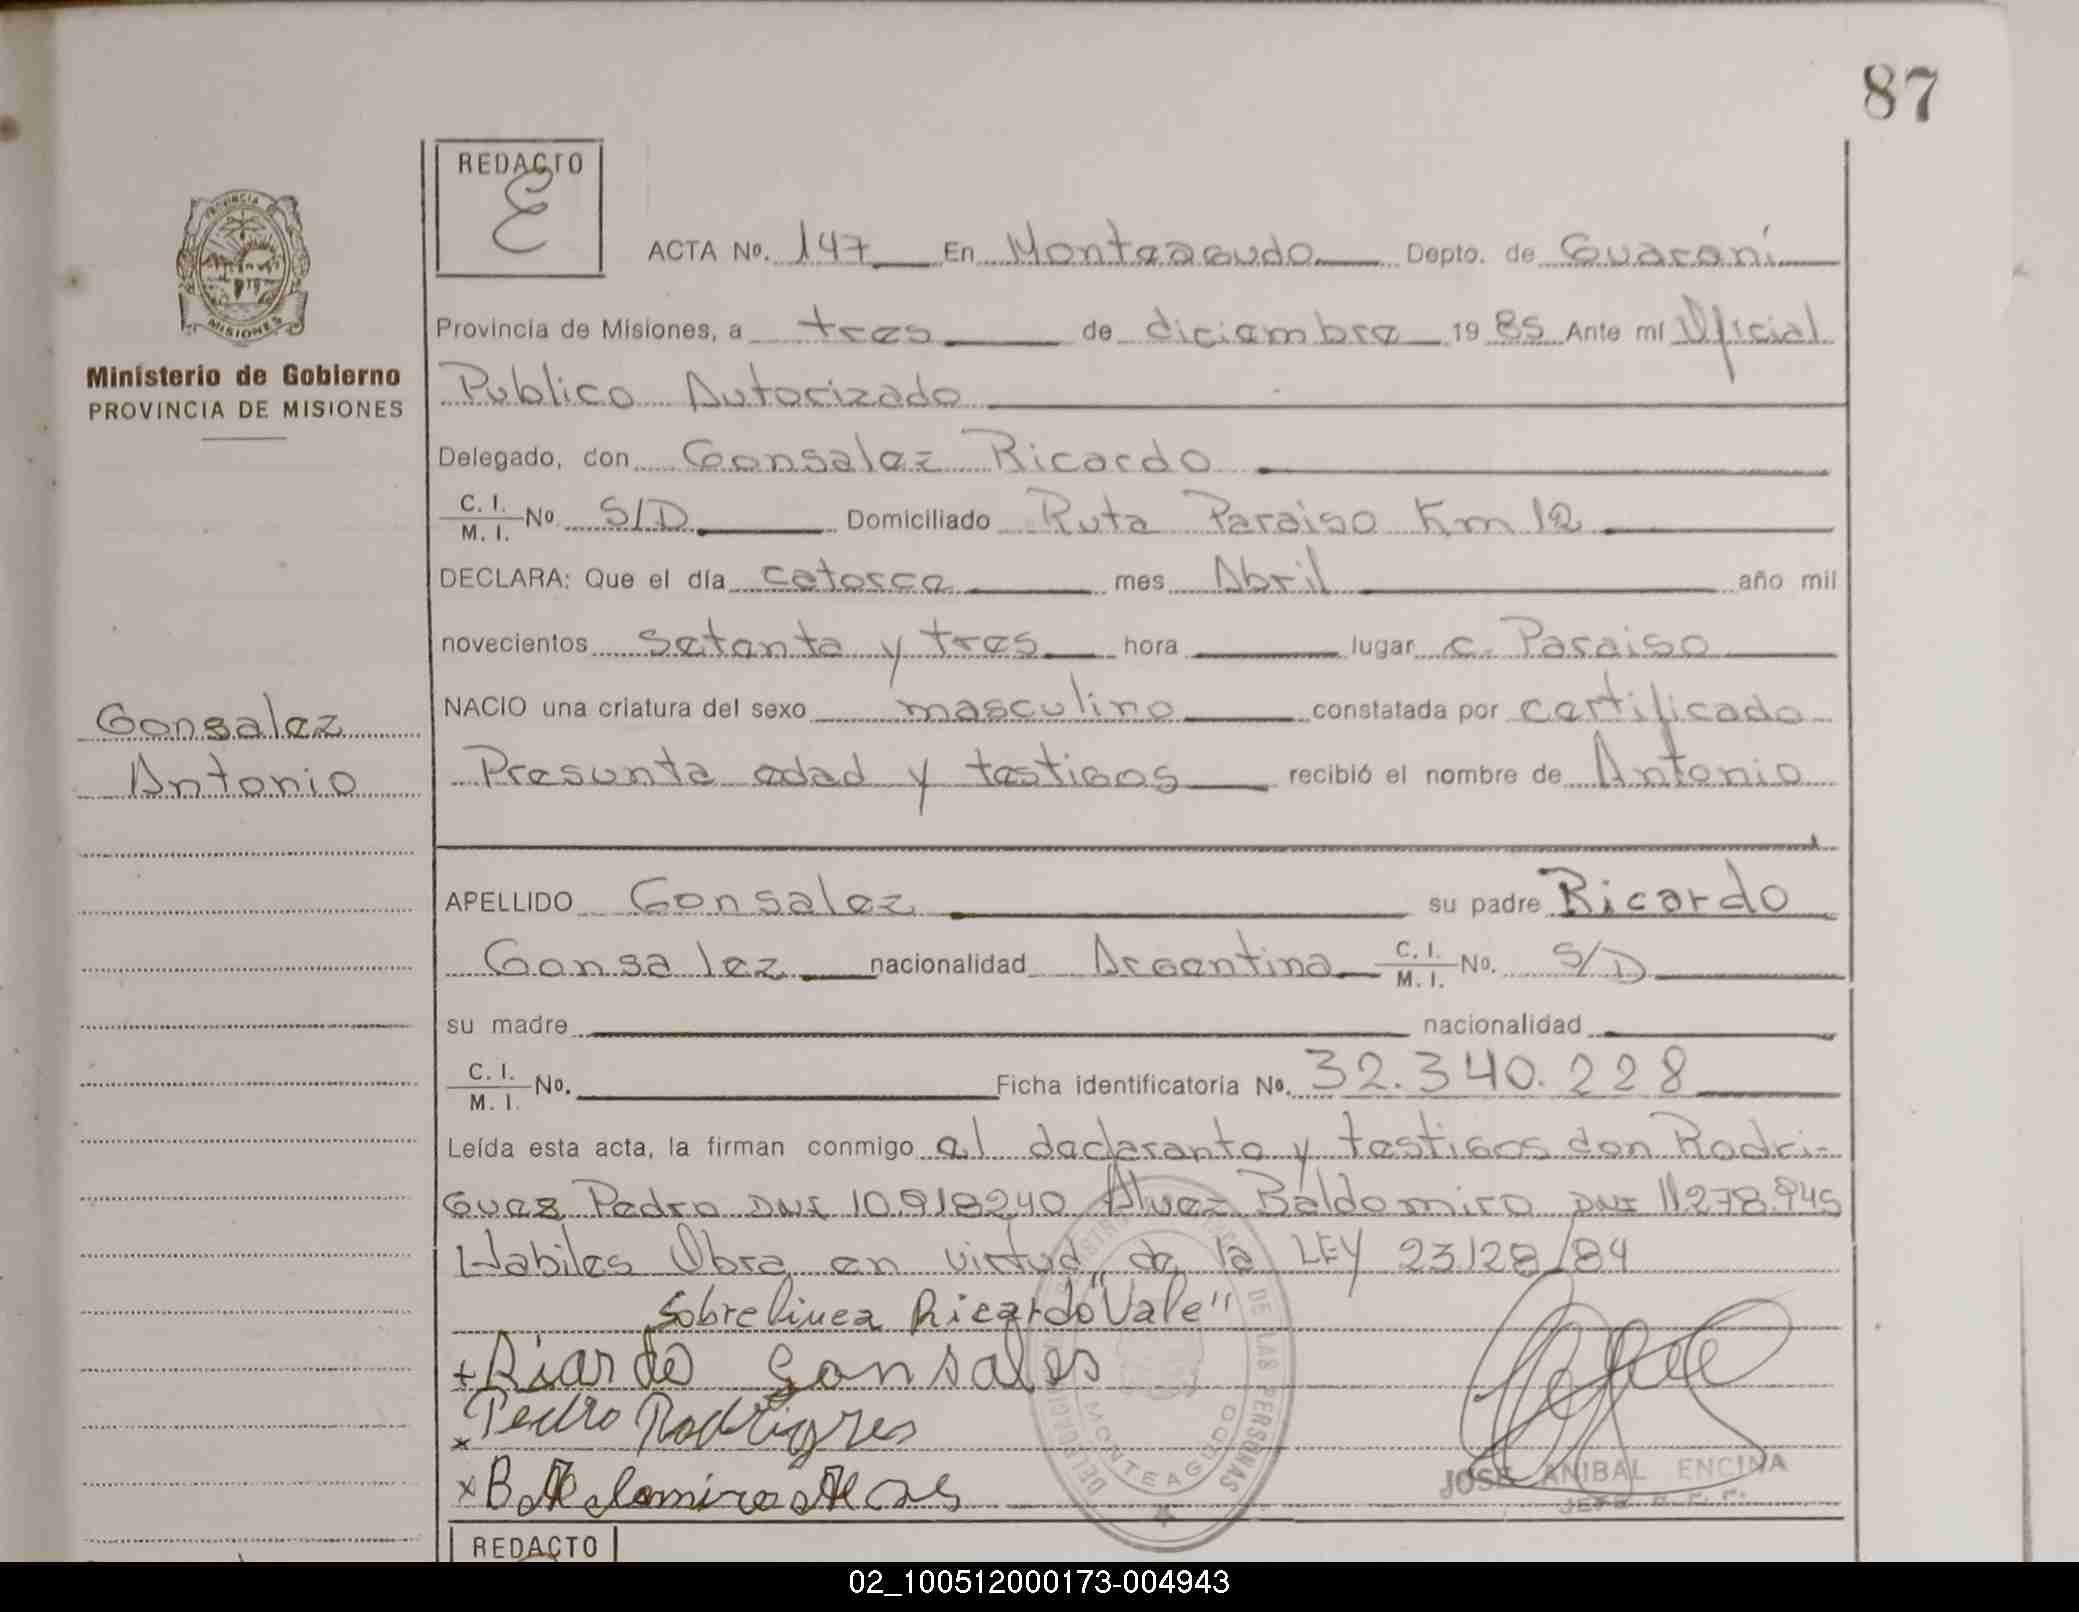 87
REDACTO
E
ACTA No. 147 En Monteagudo Depto. de Guaraní
PROVINCIA DE
MISIONES
Provincia de Misiones, a tres de diciembre 1985 Ante mí Oficial
Ministerio de Gobierno
PROVINCIA DE MISIONES
Publico Autorizado
Delegado, don Gonsalez Ricardo
C. I. M. I. No S/D Domiciliado Ruta Paraiso Km 12
DECLARA: Que el día catorce mes Abril año mil
novecientos setenta y tres hora lugar c. Paraiso
Gonsalez
Antonio
NACIO una criatura del sexo masculino constatada por certificado
Presunta edad y testigos recibió el nombre de Antonio
APELLIDO Gonsalez su padre Ricardo
Gonsalez nacionalidad Argentina C. I. M. I. No. S/D
su madre nacionalidad
C. I. M. I. No. Ficha identificatoria No. 32.340.228
Leída esta acta, la firman conmigo el declarante y testigos don Rodri-
guez Pedro DNI 10.918240 Alvez Baldomiro DNI 11278.945
Habiles Obra en virtud de la LEY 23128/84
Sobre linea Ricardo "Vale"
+ Riardo Gonsales
x Pedro Rodrigres
x
DE LAS PERSONAS
MONTEAGUDO
JOSE ANIBAL ENCINA
REDACTO
02_100512000173-004943